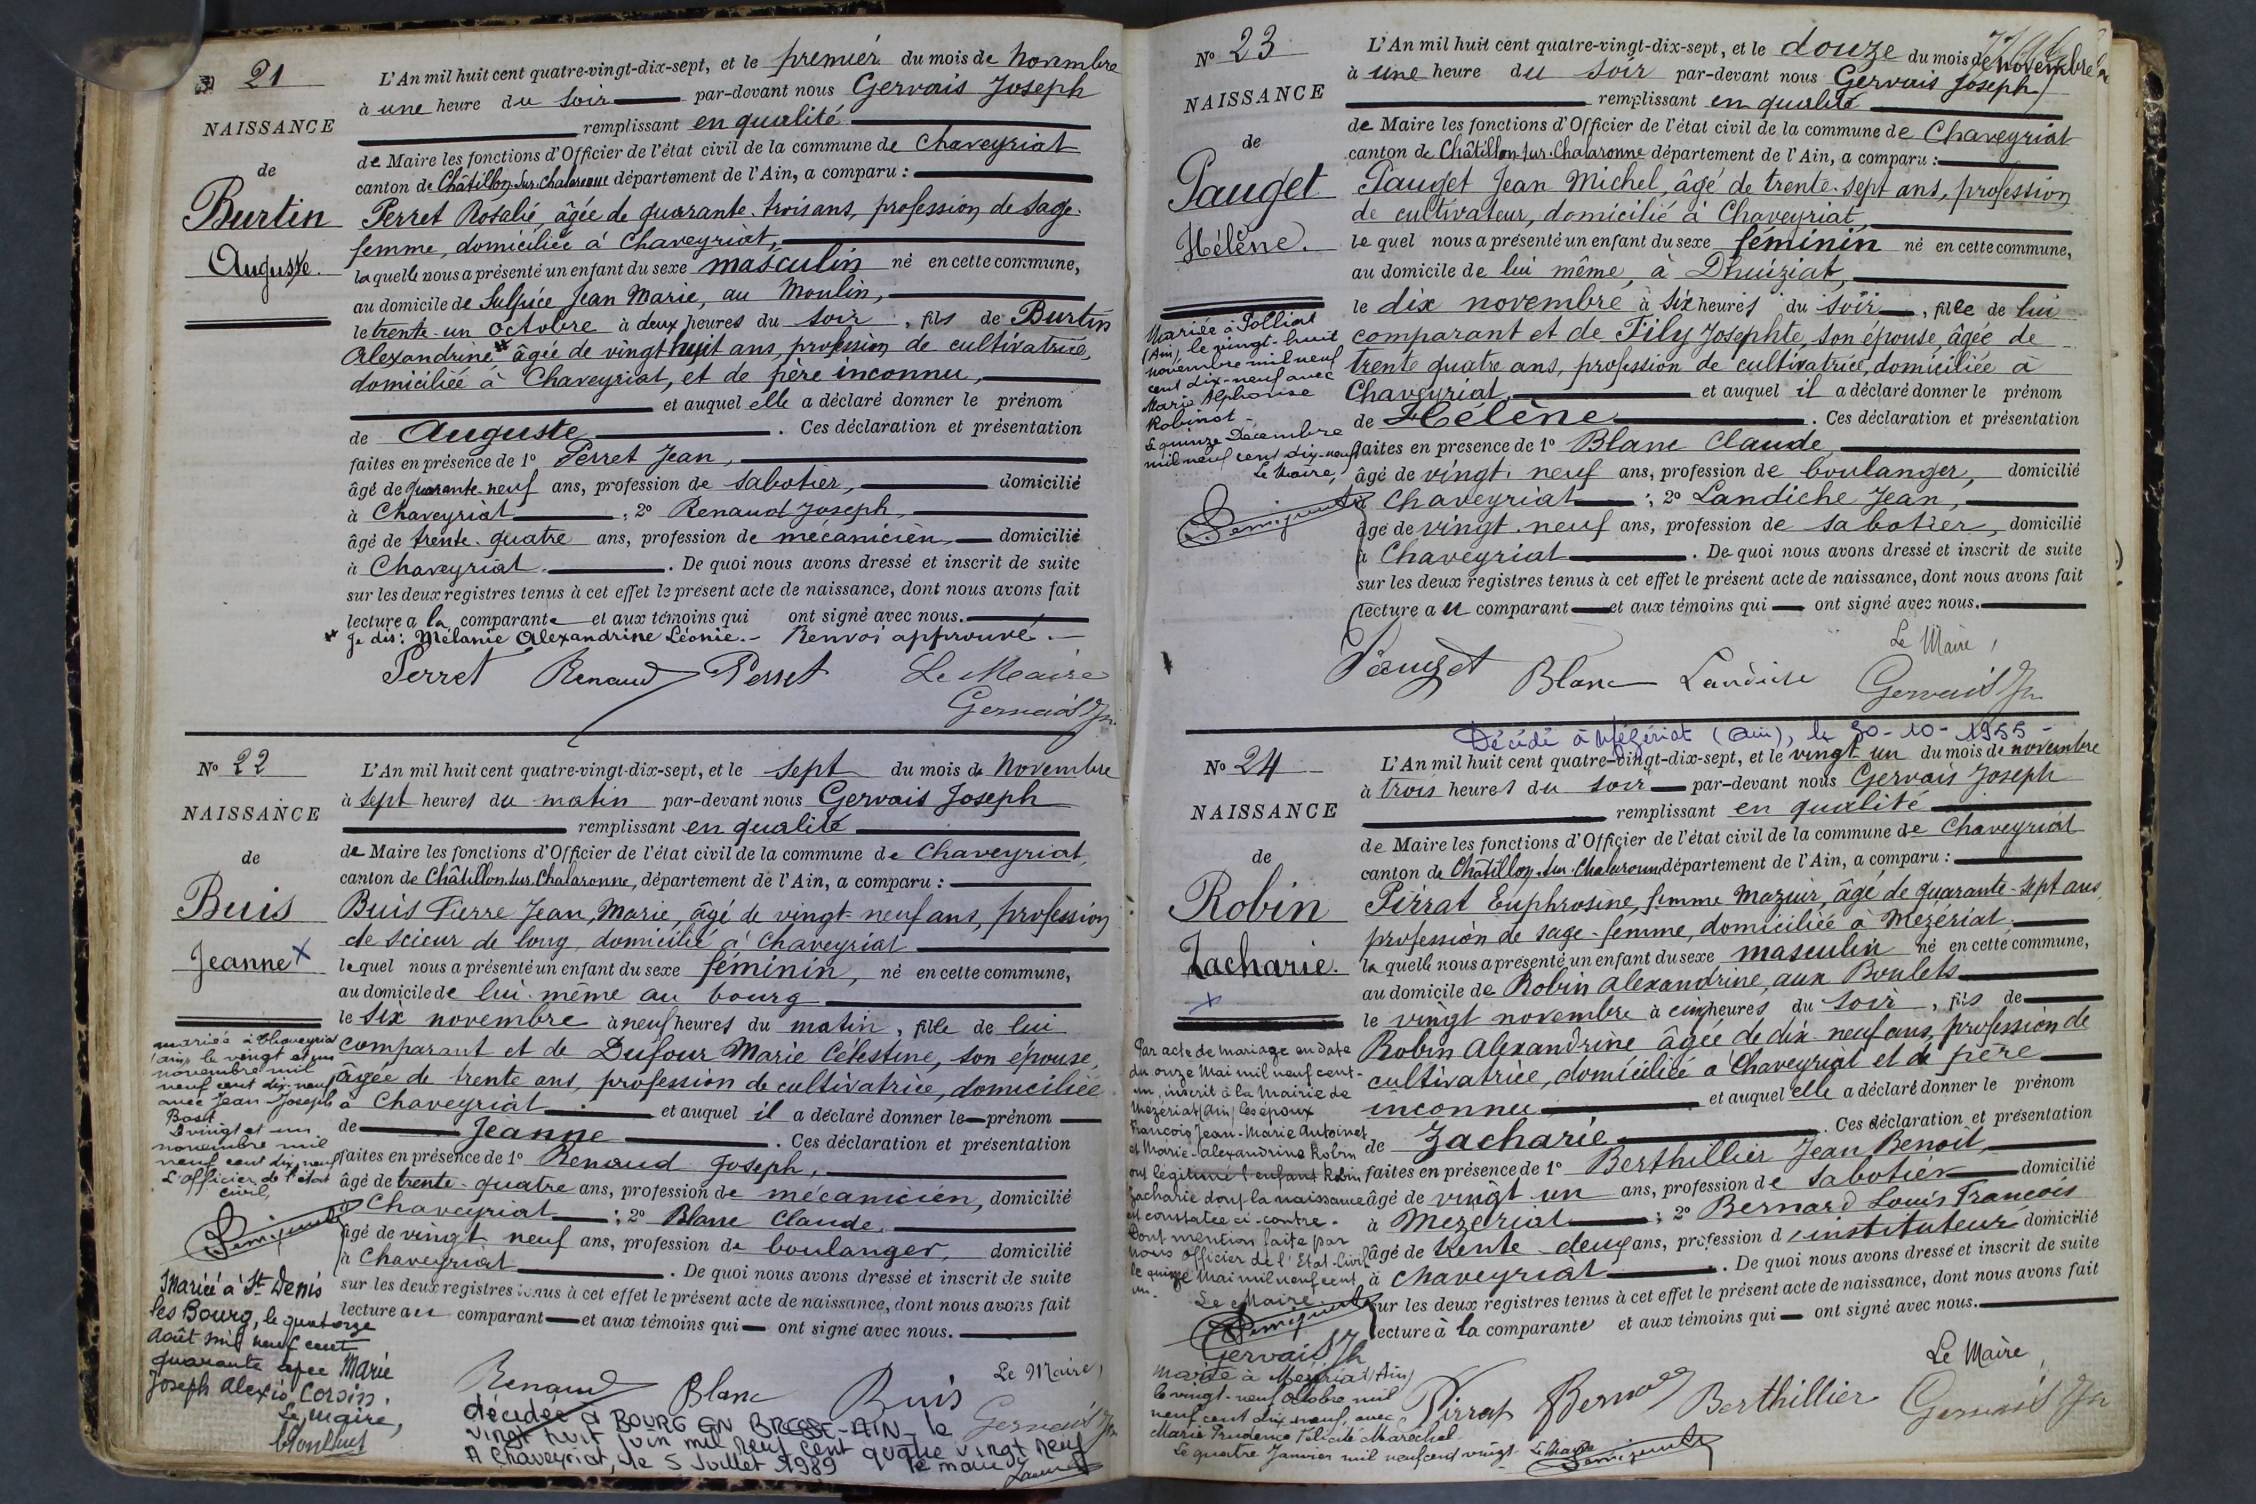 N° 21
NAISSANCE
de
Burtin
Auguste.
L'An mil huit cent quatre-vingt-dix-sept, et le premier du mois de Novembre
à une heure du soir par-devant nous Gervais Joseph
remplissant en qualité
de Maire les fonctions d'Officier de l'état civil de la commune de Chaveyriat
canton de Châtillon-sur-Chalaronne département de l'Ain, a comparu :
Perret Rosalie, âgée de quarante-trois ans, profession de sage-
femme, domiciliée à Chaveyriat,
laquelle nous a présenté un enfant du sexe masculin né en cette commune,
au domicile de Sulpice Jean Marie, au Moulin,
le trente-un octobre à deux heures du soir, fils de Burtin
Alexandrine* âgée de vingt huit ans, profession de cultivatrice,
domiciliée à Chaveyriat, et de père inconnu,
et auquel elle a déclaré donner le prénom
de Auguste. Ces déclaration et présentation
faites en présence de 1° Perret Jean,
âgé de quarante-neuf ans, profession de sabotier, domicilié
à Chaveyriat ; 2° Renaud Joseph,
âgé de trente-quatre ans, profession de mécanicien, domicilié
à Chaveyriat. De quoi nous avons dressé et inscrit de suite
sur les deux registres tenus à cet effet le présent acte de naissance, dont nous avons fait
lecture a la comparante et aux témoins qui ont signé avec nous.
* Je dis : Mélanie Alexandrine Léonie.- Renvoi approuvé.-
Perret Renaud Perret Le Maire
Gervais Jh
N° 22
NAISSANCE
de
Buis
Jeanne x
L'An mil huit cent quatre-vingt-dix-sept, et le sept du mois de Novembre
à sept heures du matin par-devant nous Gervais Joseph
remplissant en qualité
de Maire les fonctions d'Officier de l'état civil de la commune de Chaveyriat,
canton de Châtillon-sur-Chalaronne, département de l'Ain, a comparu :
Buis Pierre Jean Marie, âgé de vingt-neuf ans, profession
de scieur de long, domicilié à Chaveyriat
lequel nous a présenté un enfant du sexe féminin, né en cette commune,
au domicile de lui-même au bourg
le six novembre à neuf heures du matin, fille de lui
comparant et de Dufour Marie Célestine, son épouse,
âgée de trente ans, profession de cultivatrice, domiciliée
à Chaveyriat et auquel il a déclaré donner le prénom
de Jeanne. Ces déclaration et présentation
faites en présence de 1° Renaud Joseph,
âgé de trente-quatre ans, profession de mécanicien, domicilié
à Chaveyriat ; 2° Blanc Claude,
âgé de vingt neuf ans, profession de boulanger, domicilié
à Chaveyriat. De quoi nous avons dressé et inscrit de suite
sur les deux registres tenus à cet effet le présent acte de naissance, dont nous avons fait
lecture au comparant et aux témoins qui ont signé avec nous.
Renaud Blanc Buis Le Maire,
Gervais Jh
mariée à Chaveyriat
(Ain) le vingt et un
novembre mil
neuf cent dix-neuf
avec Jean-Joseph
Le vingt et un
novembre mil
neuf cent dix neuf
L'officier de l'état
civil,
Mariée à St Denis
les Bourg, le quatorze
août mil neuf cent
quarante avec Marie
Joseph Alexis Corsin.
Le maire,
décédée à BOURG EN BRESSE-AIN- le
vingt huit juin mil neuf cent quatre vingt neuf
A Chaveyriat, le 5 Juillet 1989 le maire
N° 23
NAISSANCE
de
Pauget
Hélène.
L'An mil huit cent quatre-vingt-dix-sept, et le douze du mois de novembre
à une heure du soir par-devant nous Gervais Joseph
remplissant en qualité
de Maire les fonctions d'Officier de l'état civil de la commune de Chaveyriat
canton de Châtillon-sur-Chalaronne département de l'Ain, a comparu :
Pauget Jean Michel, âgé de trente-sept ans, profession
de cultivateur, domicilié à Chaveyriat
lequel nous a présenté un enfant du sexe féminin né en cette commune,
au domicile de lui même, à Dhuiziat,
le dix novembre à six heures du soir, fille de lui
comparant et de Fily Josephte, son épouse, âgée de
trente quatre ans, profession de cultivatrice, domiciliée à
Chaveyriat, et auquel il a déclaré donner le prénom
de Hélène. Ces déclaration et présentation
faites en presence de 1° Blanc Claude,
âgé de vingt-neuf ans, profession de boulanger, domicilié
à Chaveyriat ; 2° Landiche Jean,
âgé de vingt-neuf ans, profession de sabotier, domicilié
à Chaveyriat. De quoi nous avons dressé et inscrit de suite
sur les deux registres tenus à cet effet le présent acte de naissance, dont nous avons fait
lecture au comparant et aux témoins qui ont signé avec nous.
Le Maire,
Pauget Blanc Landiche Gervais Jh
Mariée à Polliat
(Ain), le vingt-huit
novembre mil neuf
cent dix-neuf avec
Marie Alphonse
Robinot -
Le quinze Décembre
mil neuf cent dix-neuf
Le Maire,
Décédé à Mézériat (Ain), le 30-10-1955-
N° 24
NAISSANCE
de
Robin
Zacharie.
x
L'An mil huit cent quatre-vingt-dix-sept, et le vingt-un du mois de novembre
à trois heures du soir par-devant nous Gervais Joseph
remplissant en qualité
de Maire les fonctions d'Officier de l'état civil de la commune de Chaveyriat
canton de Châtillon-sur-Chalaronne département de l'Ain, a comparu :
Pirrat Euphrosine, femme Mazuir, âgé de quarante-sept ans,
profession de sage-femme, domiciliée à Mézériat,
laquelle nous a présenté un enfant du sexe masculin né en cette commune,
au domicile de Robin Alexandrine, aux Boulets
le vingt novembre à cinq heures du soir, fils de
Robin Alexandrine âgée de dix-neuf ans, profession de
cultivatrice, domiciliée à Chaveyriat et de père
inconnu et auquel elle a déclaré donner le prénom
de Zacharie. Ces déclaration et présentation
faites en présence de 1° Berthillier Jean Benoît,
âgé de vingt un ans, profession de sabotier domicilié
à Mézériat ; 2° Bernard Louis François
âgé de trente-deux ans, profession d'instituteur domicilié
à Chaveyriat. De quoi nous avons dressé et inscrit de suite
sur les deux registres tenus à cet effet le présent acte de naissance, dont nous avons fait
lecture à la comparante et aux témoins qui ont signé avec nous.
Le Maire,
Pirrat Bernard Berthillier Gervais Jh
Par acte de mariage en date
du onze Mai mil neuf cent-
un, inscrit à la Mairie de
Mézériat (Ain) les époux
François Jean-Marie Antoine
et Marie-Alexandrine Robin
ont légitimé l'enfant Robin
Zacharie dont la naissance
est constatée ci-contre.
Dont mention faite par
nous officier de l'Etat-Civil
le quinze Mai mil neuf cent
un.
Le Maire
Gervais Jh
Marié à Mézériat (Ain)
le vingt-neuf octobre mil
neuf cent dix-neuf, avec
Marie Prudence Félicité Maréchal
Le quatre Janvier mil neuf cent vingt. Le Maire